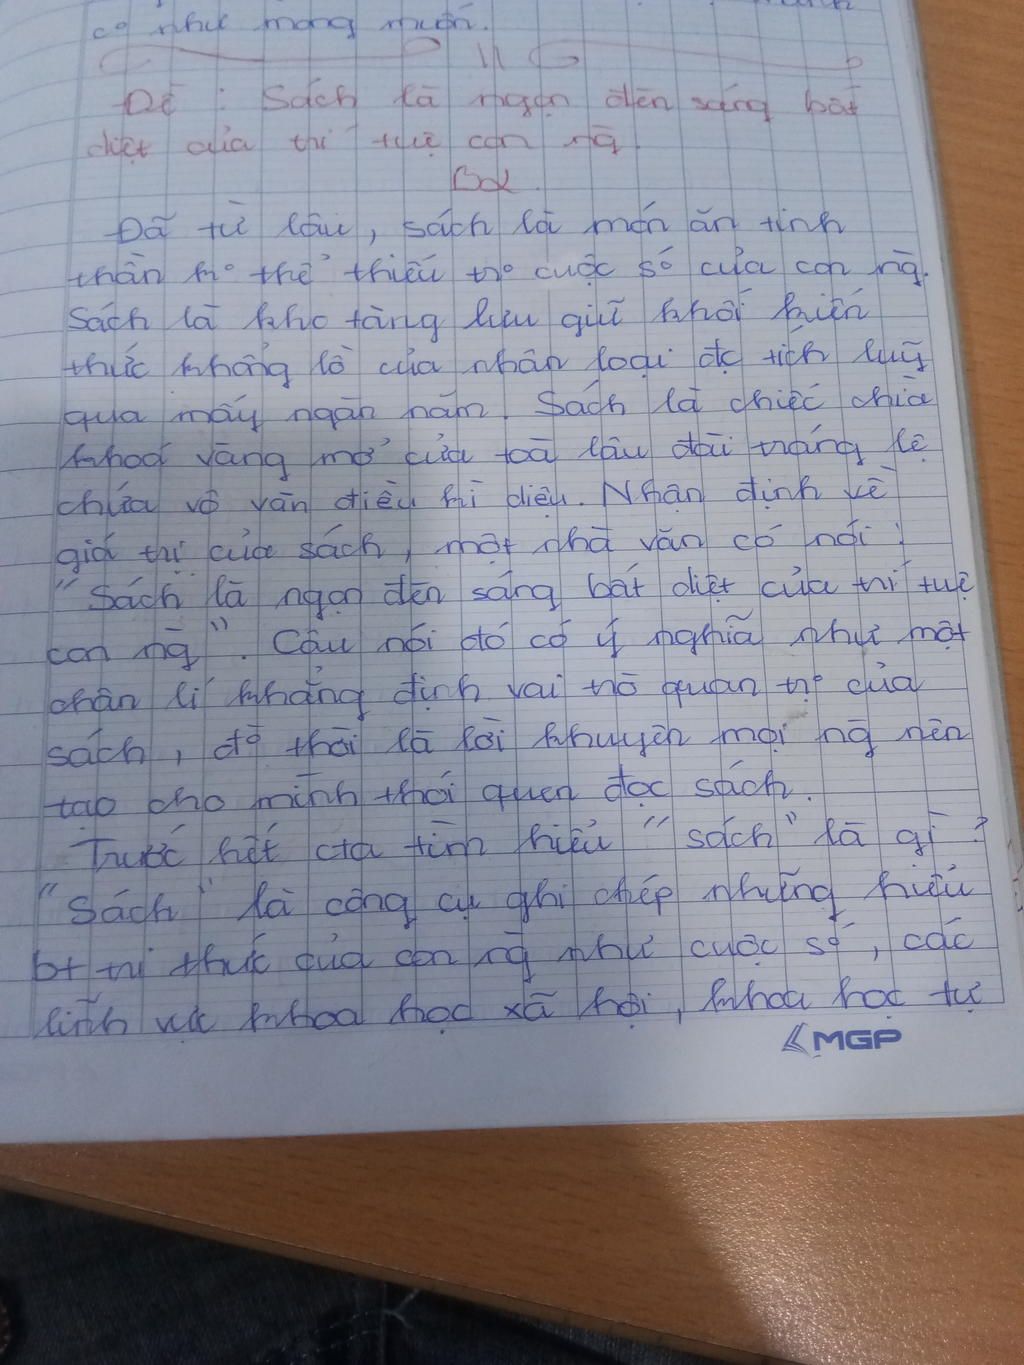 có như mong muốn.
Đề : Sách là ngọn đèn sáng bất
diệt của trí tuệ con ng̀
Bài
Đã từ lâu, sách là món ăn tinh
thần ko thể thiếu tro cuộc số của con ng̀.
Sách là kho tàng lưu giữ khối kiến
thức khổng lồ của nhân loại đc tích luỹ
qua mấy ngàn năm. Sách là chiếc chìa
khoá vàng mở cửa toà lâu đài tráng lệ
chứa vô vàn điều kì diệu. Nhận định về
giá trị của sách, một nhà văn có nói :
"Sách là ngọn đèn sáng bất diệt của trí tuệ
con ng̀". Câu nói đó có ý nghĩa như một
chân lí khẳng định vai trò quan trọ của
sách, đồ thời là lời khuyên mọi ng̀ nên
tạo cho mình thói quen đọc sách.
Trước hết cta tìm hiểu "sách" là gì ?
"Sách" là công cụ ghi chép những hiểu
bt tri thức của con ng̀ như cuộc số, các
lĩnh vực khoa học xã hội, khoa học tự
MGP